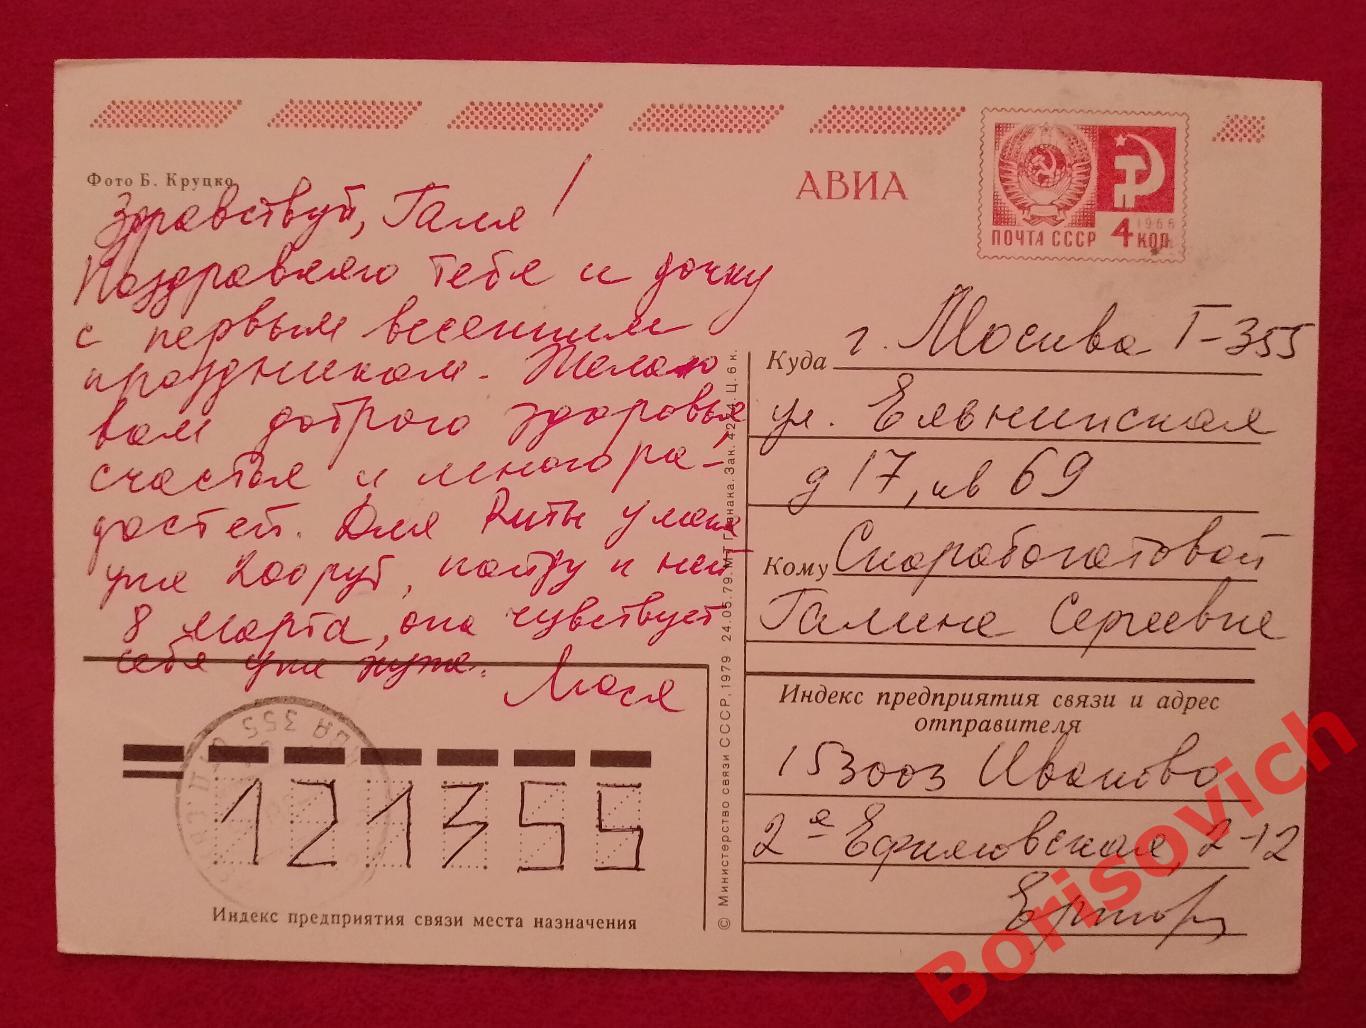 Фото Б. Круцко
АВИА
1966
ПОЧТА СССР 4 КОП
Здравствуй, Галя!
Поздравляю тебя и дочку
с первым весенним
праздником. Желаю
вам доброго здоровья
счастья и много ра-
достей. Для Риты у меня
уже
8 марта, она чувствует
себя уже хуже.
Люся
Куда г. Москва Г-355
ул. Ельнинская
д 17, кв 69
Кому Скоробогатовой
Галине Сергеевне
Индекс предприятия связи и адрес
отправителя
153003 Иваново
2я Ефимовская 2-12
© Министерство связи СССР, 1979 24.05.79. МТ Гознака. Зак. Ц. 6 к.
355
121355
Индекс предприятия связи места назначения
Borisovich